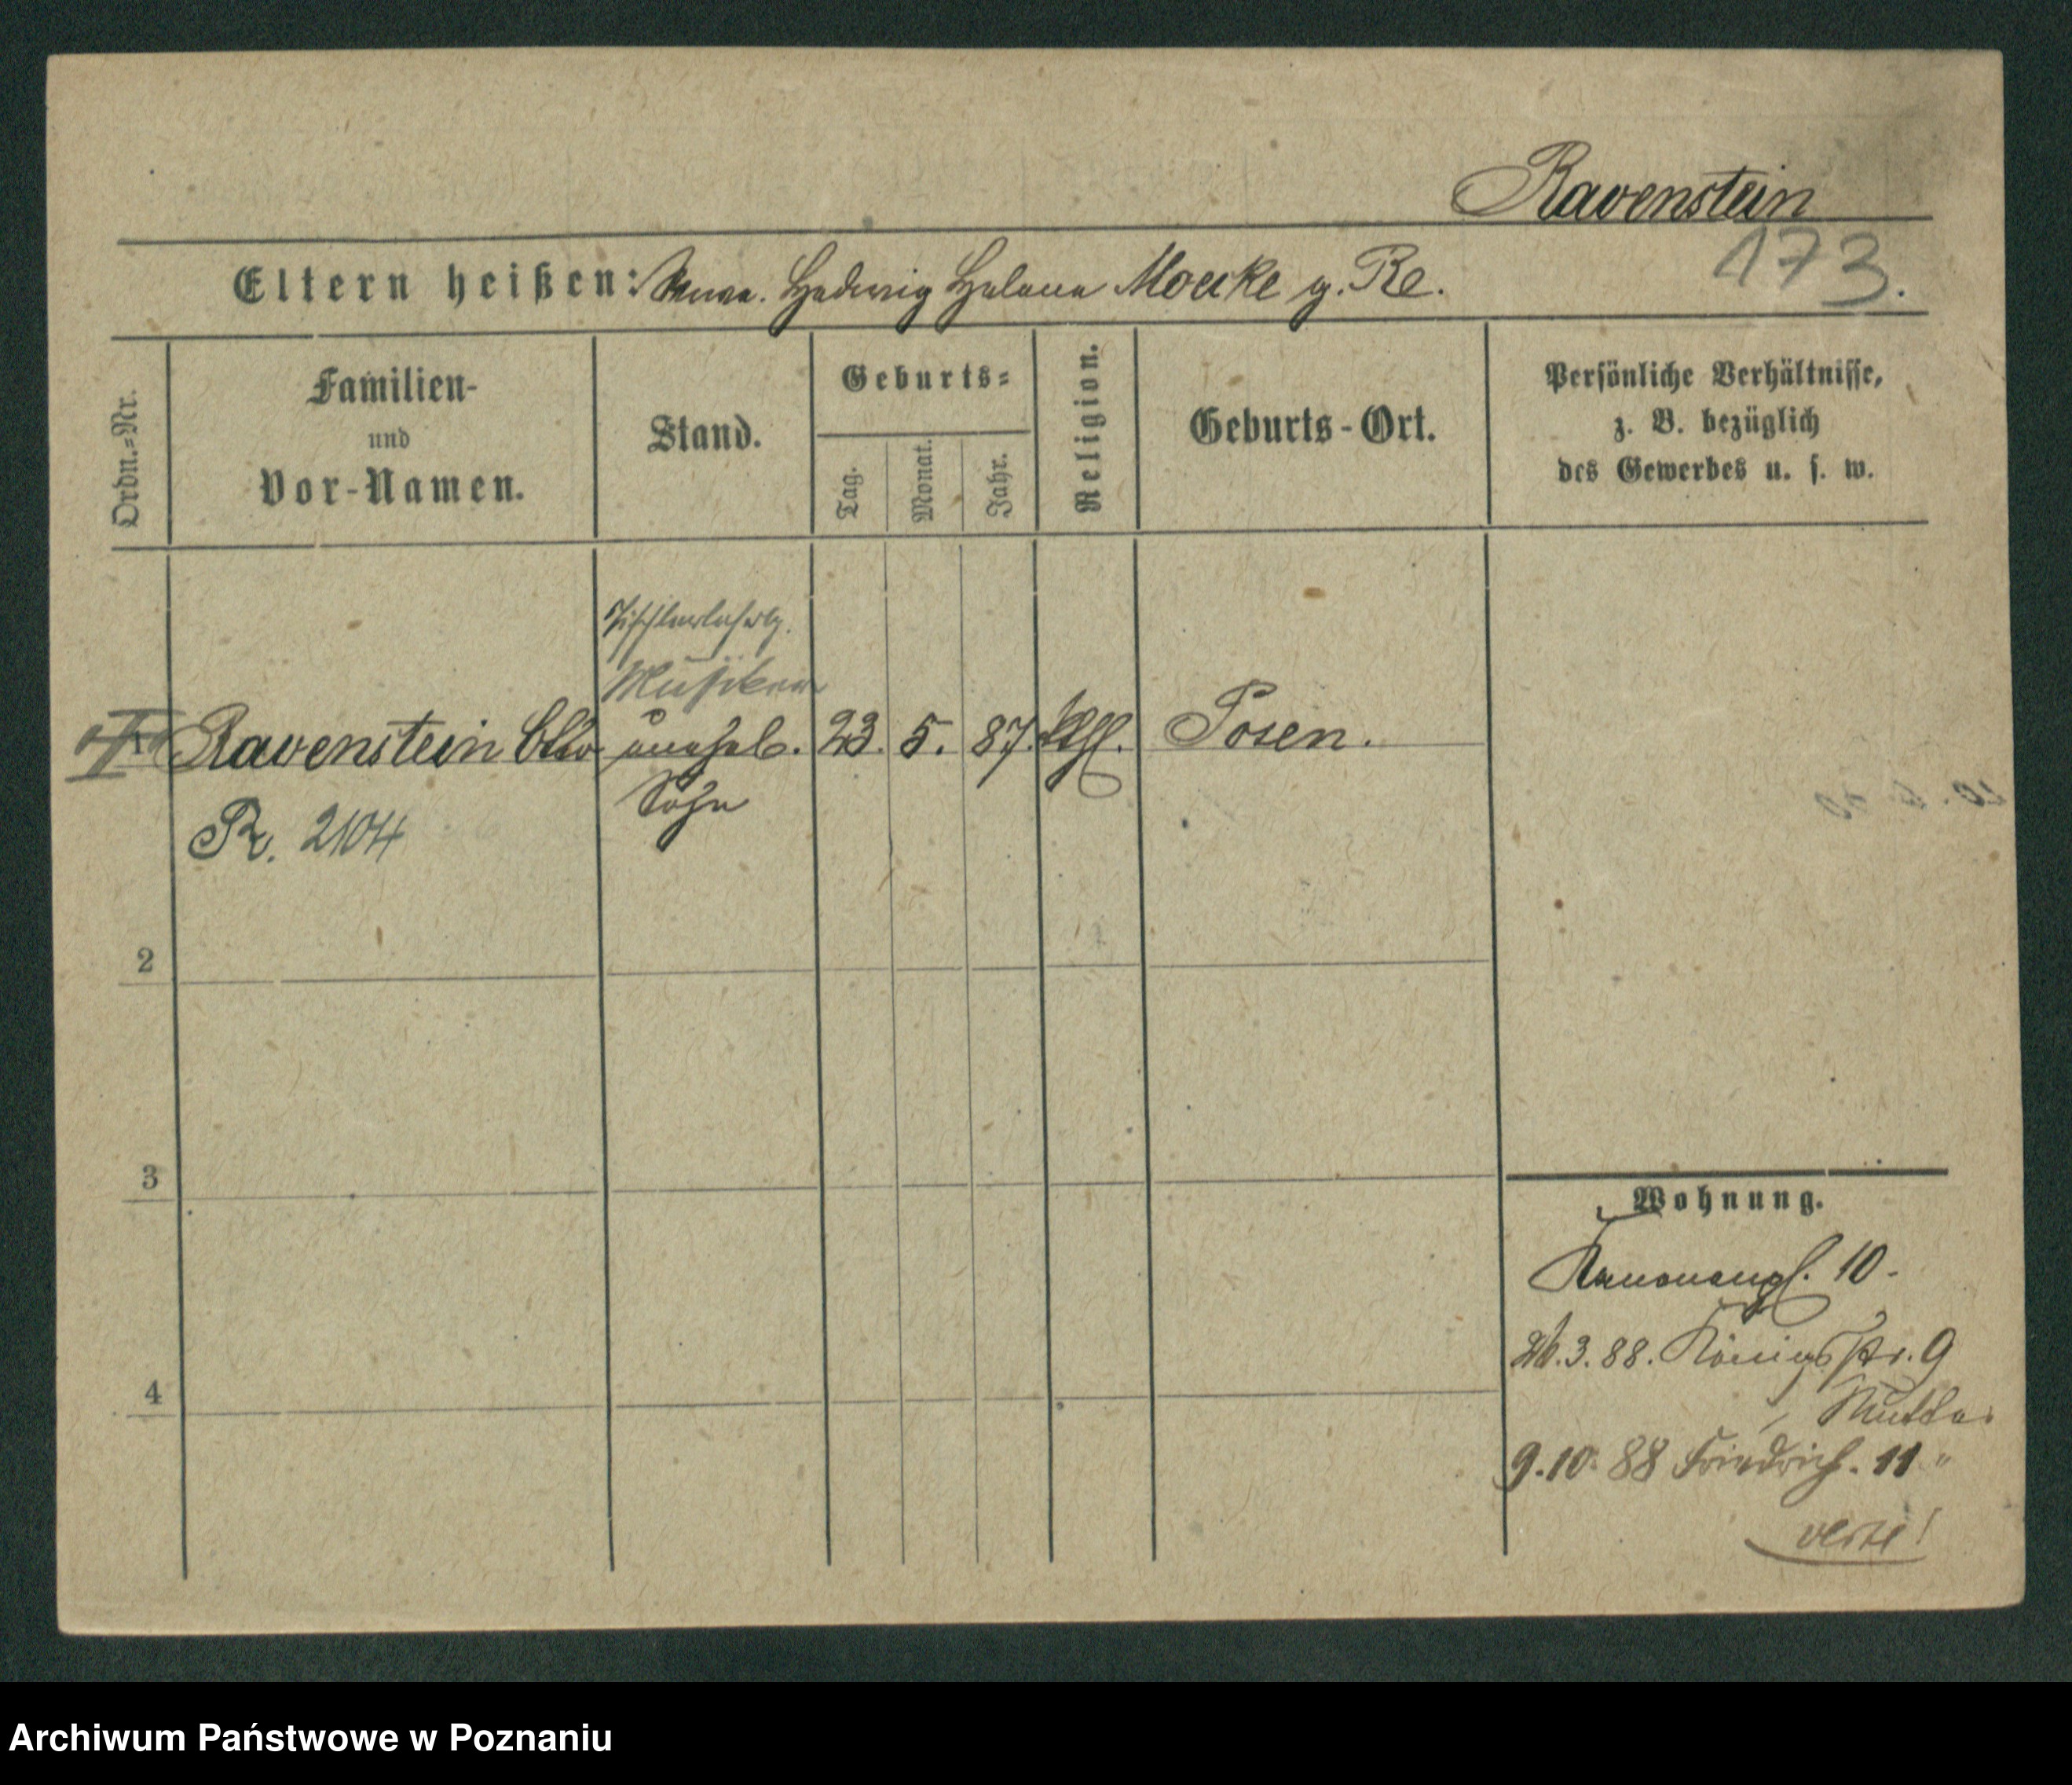 Ravenstein
173.
Eltern heißen: Anna. Hedwig Helena Moecke g. Re.
Ordn.=Nr.
Familien-
und
Vor-Namen.
Stand.
Geburts=
Tag.
Monat.
Jahr.
Religion.
Geburts-Ort.
Persönliche Verhältnisse,
z. B. bezüglich
des Gewerbes u. s. w.
Tischlerlehrlg.
Musiker
1 Ravenstein unehel. 23. 5. 87. Posen.
Sohn
R. 2104
2
3
4
Wohnung.
Kanonenpl. 10-
26.3.88. Königsstr. 9
Mutter
9.10.88 Friedrich. 11 "
verte!
Archiwum Państwowe w Poznaniu